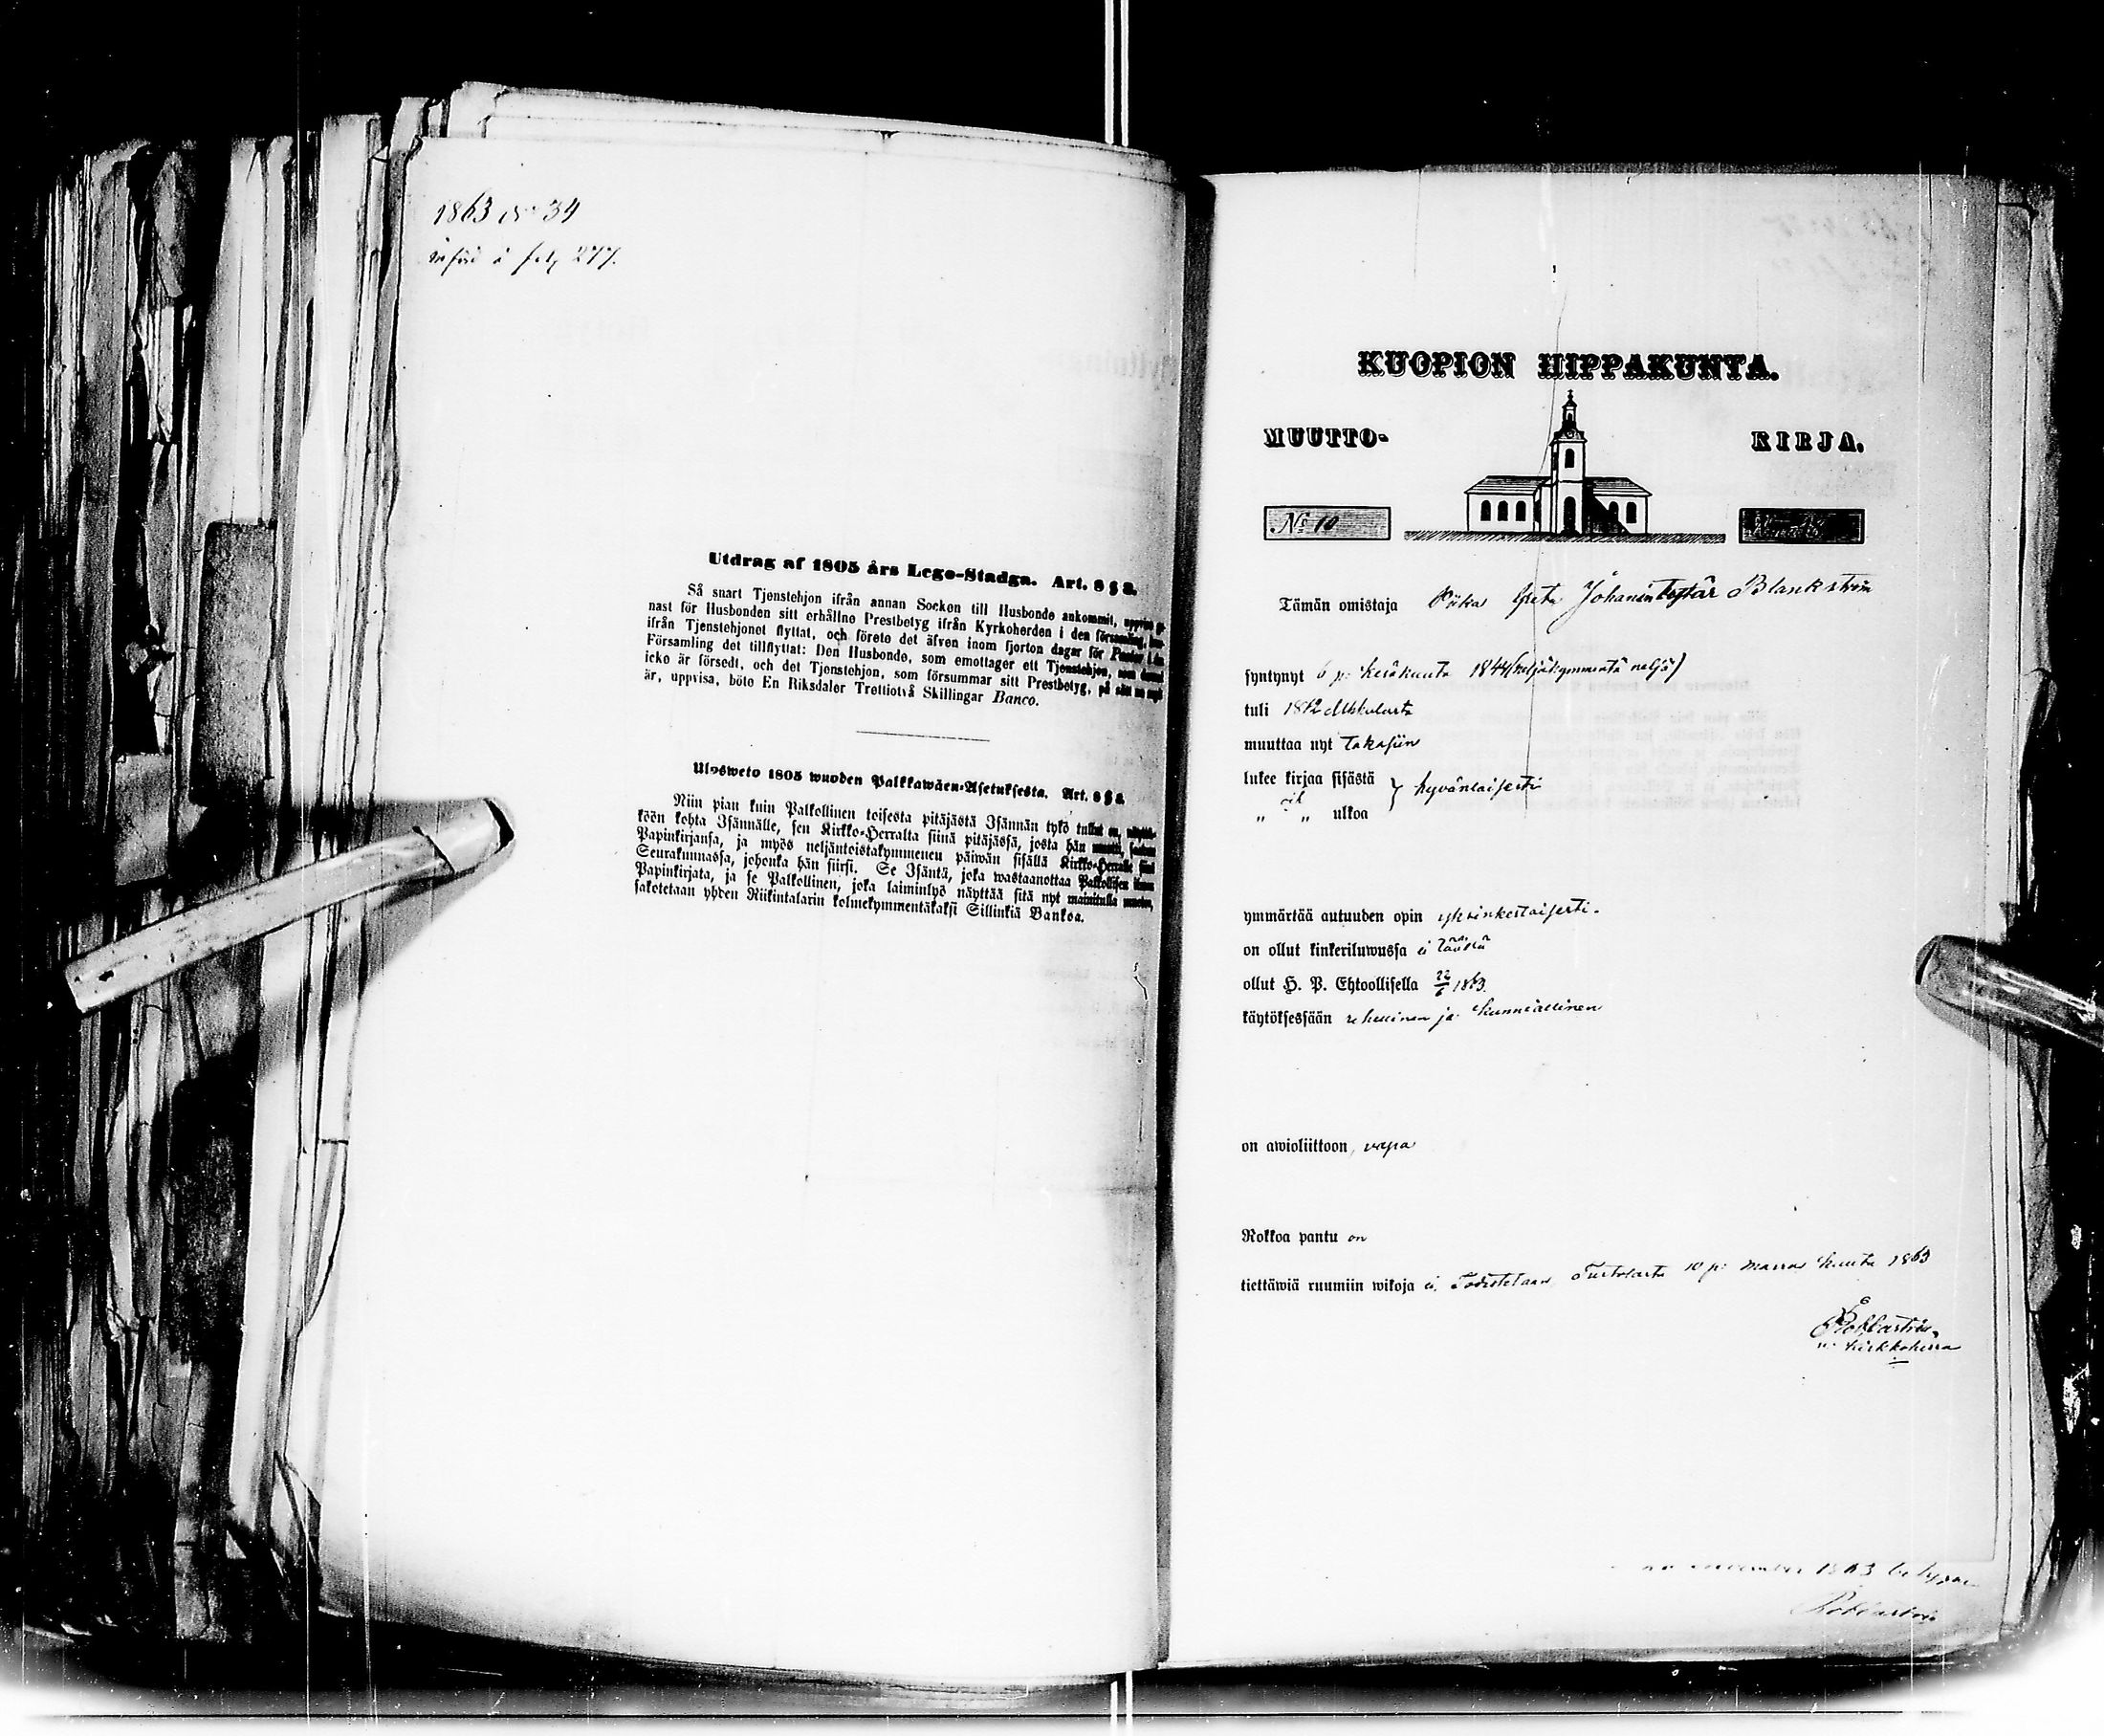 1863 No 34
införd å fol. 277.
Utdrag af 1805 års Lego-Stadga. Art. 8 § 3.
Så snart Tjenstehjon ifrån annan Socken till Husbonde ankommit, uppvise
nast för Husbonden sitt erhållne Prestbetyg ifrån Kyrkoherden i den församling,
ifrån Tjenstehjonet flyttat, och förete det äfven inom fjorton dagar för Pastor i
Församling det tillflyttat: Den Husbonde, som emottager ett Tjenstehjon, som
icke är försedt, och det Tjenstehjon, som försummar sitt Prestbetyg, på sätt
är, uppvisa, böte En Riksdaler Trettiotvå Skillingar Banco.
Ulosweto 1805 wuoden Palkkawäen-Asetuksesta. Art. 8 § 3.
Niin pian kuin Palkollinen toisesta pitäjästä Isännän tykö tullut on,
köön kohta Isännälle, sen Kirkko-Herralta siinä pitäjässä, josta hän muutti,
Papinkirjansa, ja myös neljäntoistakymmenen päiwän sisällä Kirkko-Herralle
Seurakunnassa, johonka hän siirsi. Se Isäntä, joka wastaanottaa Palkollisen
Papinkirjata, ja se Palkollinen, joka laiminlyö näyttää sitä nyt mainitulla
sakotetaan yhden Riikintalarin kolmekymmentäkaksi Sillinkiä Bankoa.
KUOPION HIPPAKUNTA.
MUUTTO- KIRJA.
No 10
Tämän omistaja Piika Greta Johanintytär Blankström
syntynyt 6 p: kesäkuuta 1844 (neljäkymmentä neljä)
tuli 1862 Alkkulasta
muuttaa nyt takasiin
lukee kirjaa sisästä } hyvänlaisesti
„ „ ulkoa
ymmärtää autuuden opin yksinkertaisesti.
on ollut kinkeriluwussa ei täällä
ollut H. P. Ehtoollisella 22/6 1863.
käytöksessään rehellinen ja kunniallinen
on awioliittoon, vapa
Rokkoa pantu on
tiettäwiä ruumiin wikoja ei. Todistetaan Turtolasta 10 p: marras kuuta 1863
v: kirkkoherra
november 1863 betygar